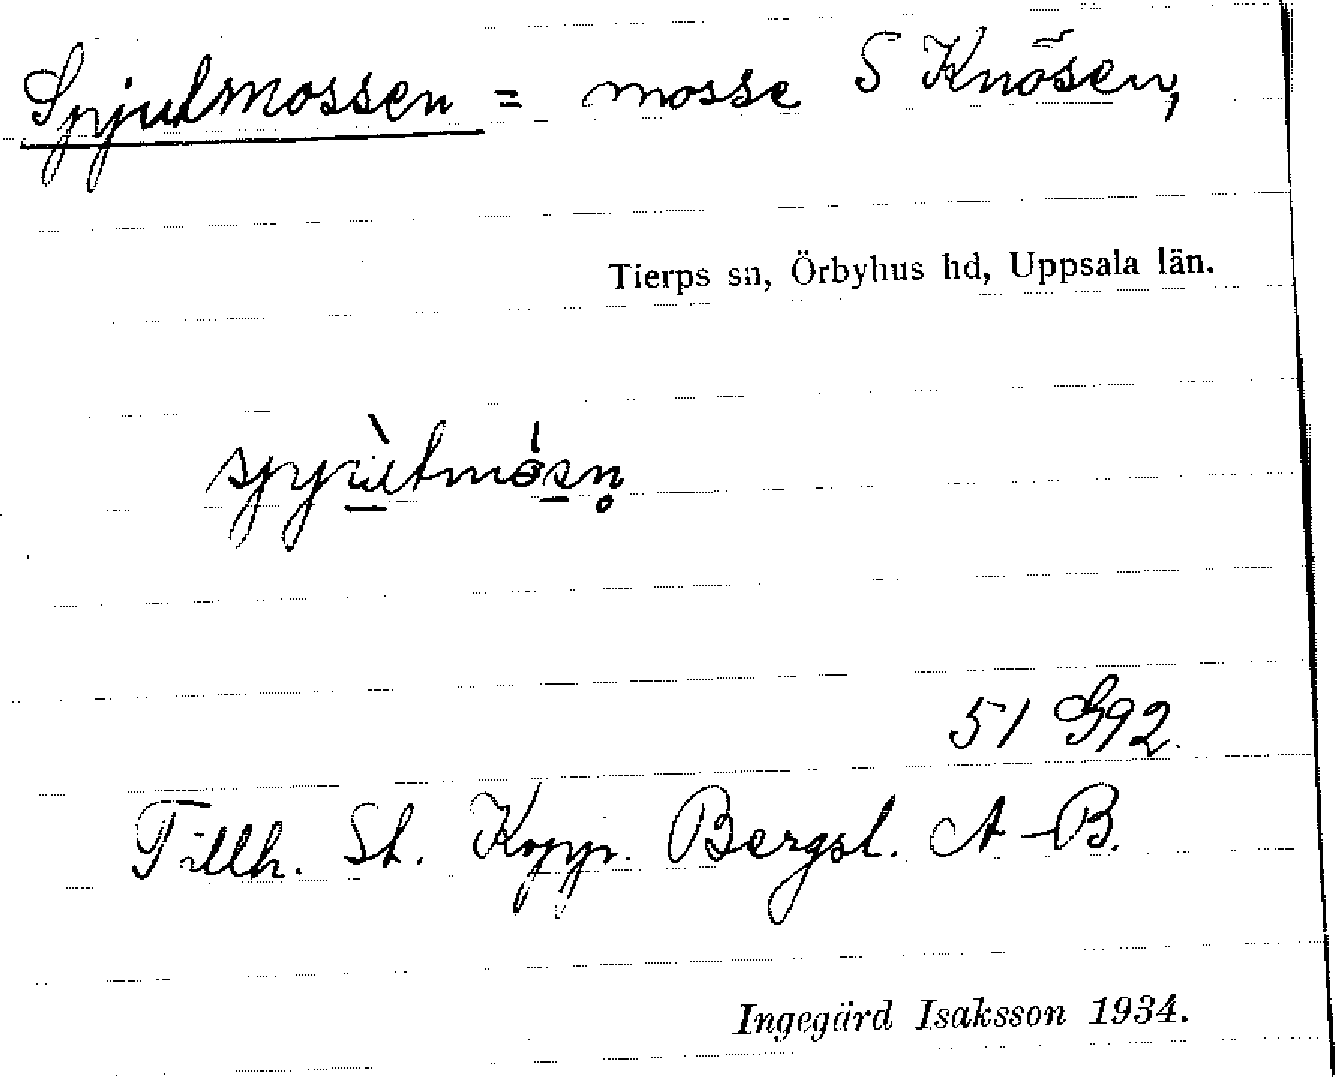 Spjutmossen = mosse S Knösen,
Tierps sn, Örbyhus hd, Uppsala län.
spyùtmósn̥
51 G92.
Tillh. St. Kopp. Bergsl. A-B.
Ingegärd Isaksson 1934.